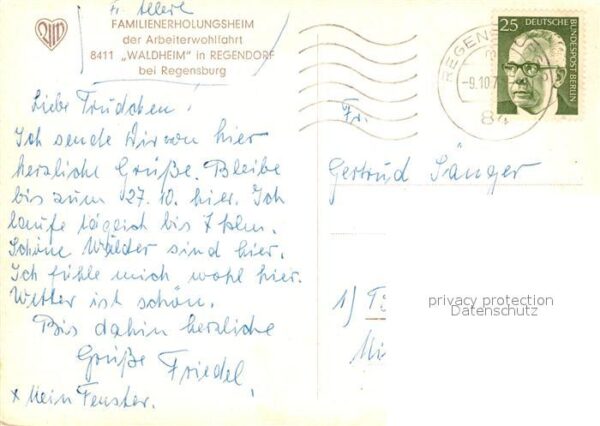 FAMILIENERHOLUNGSHEIM
der Arbeiterwohlfahrt
8411 „WALDHEIM" in REGENDORF
bei Regensburg
Liebe Trudchen!
Ich sende Dir von hier
herzliche Grüße. Bleibe
bis zum 27.10. hier. Ich
laufe tägeich bis 7 klm.
Schöne Wälder sind hier.
Ich fühle mich wohl hier.
Wetter ist schön.
Bis dahin herzliche
Grüße Friedel
x Mein Fenster.
25 DEUTSCHE
BUNDESPOST BERLIN
REGENS
-9.10.7
84
Fr.
Gertrud Sänger
1/
privacy protection
Datenschutz